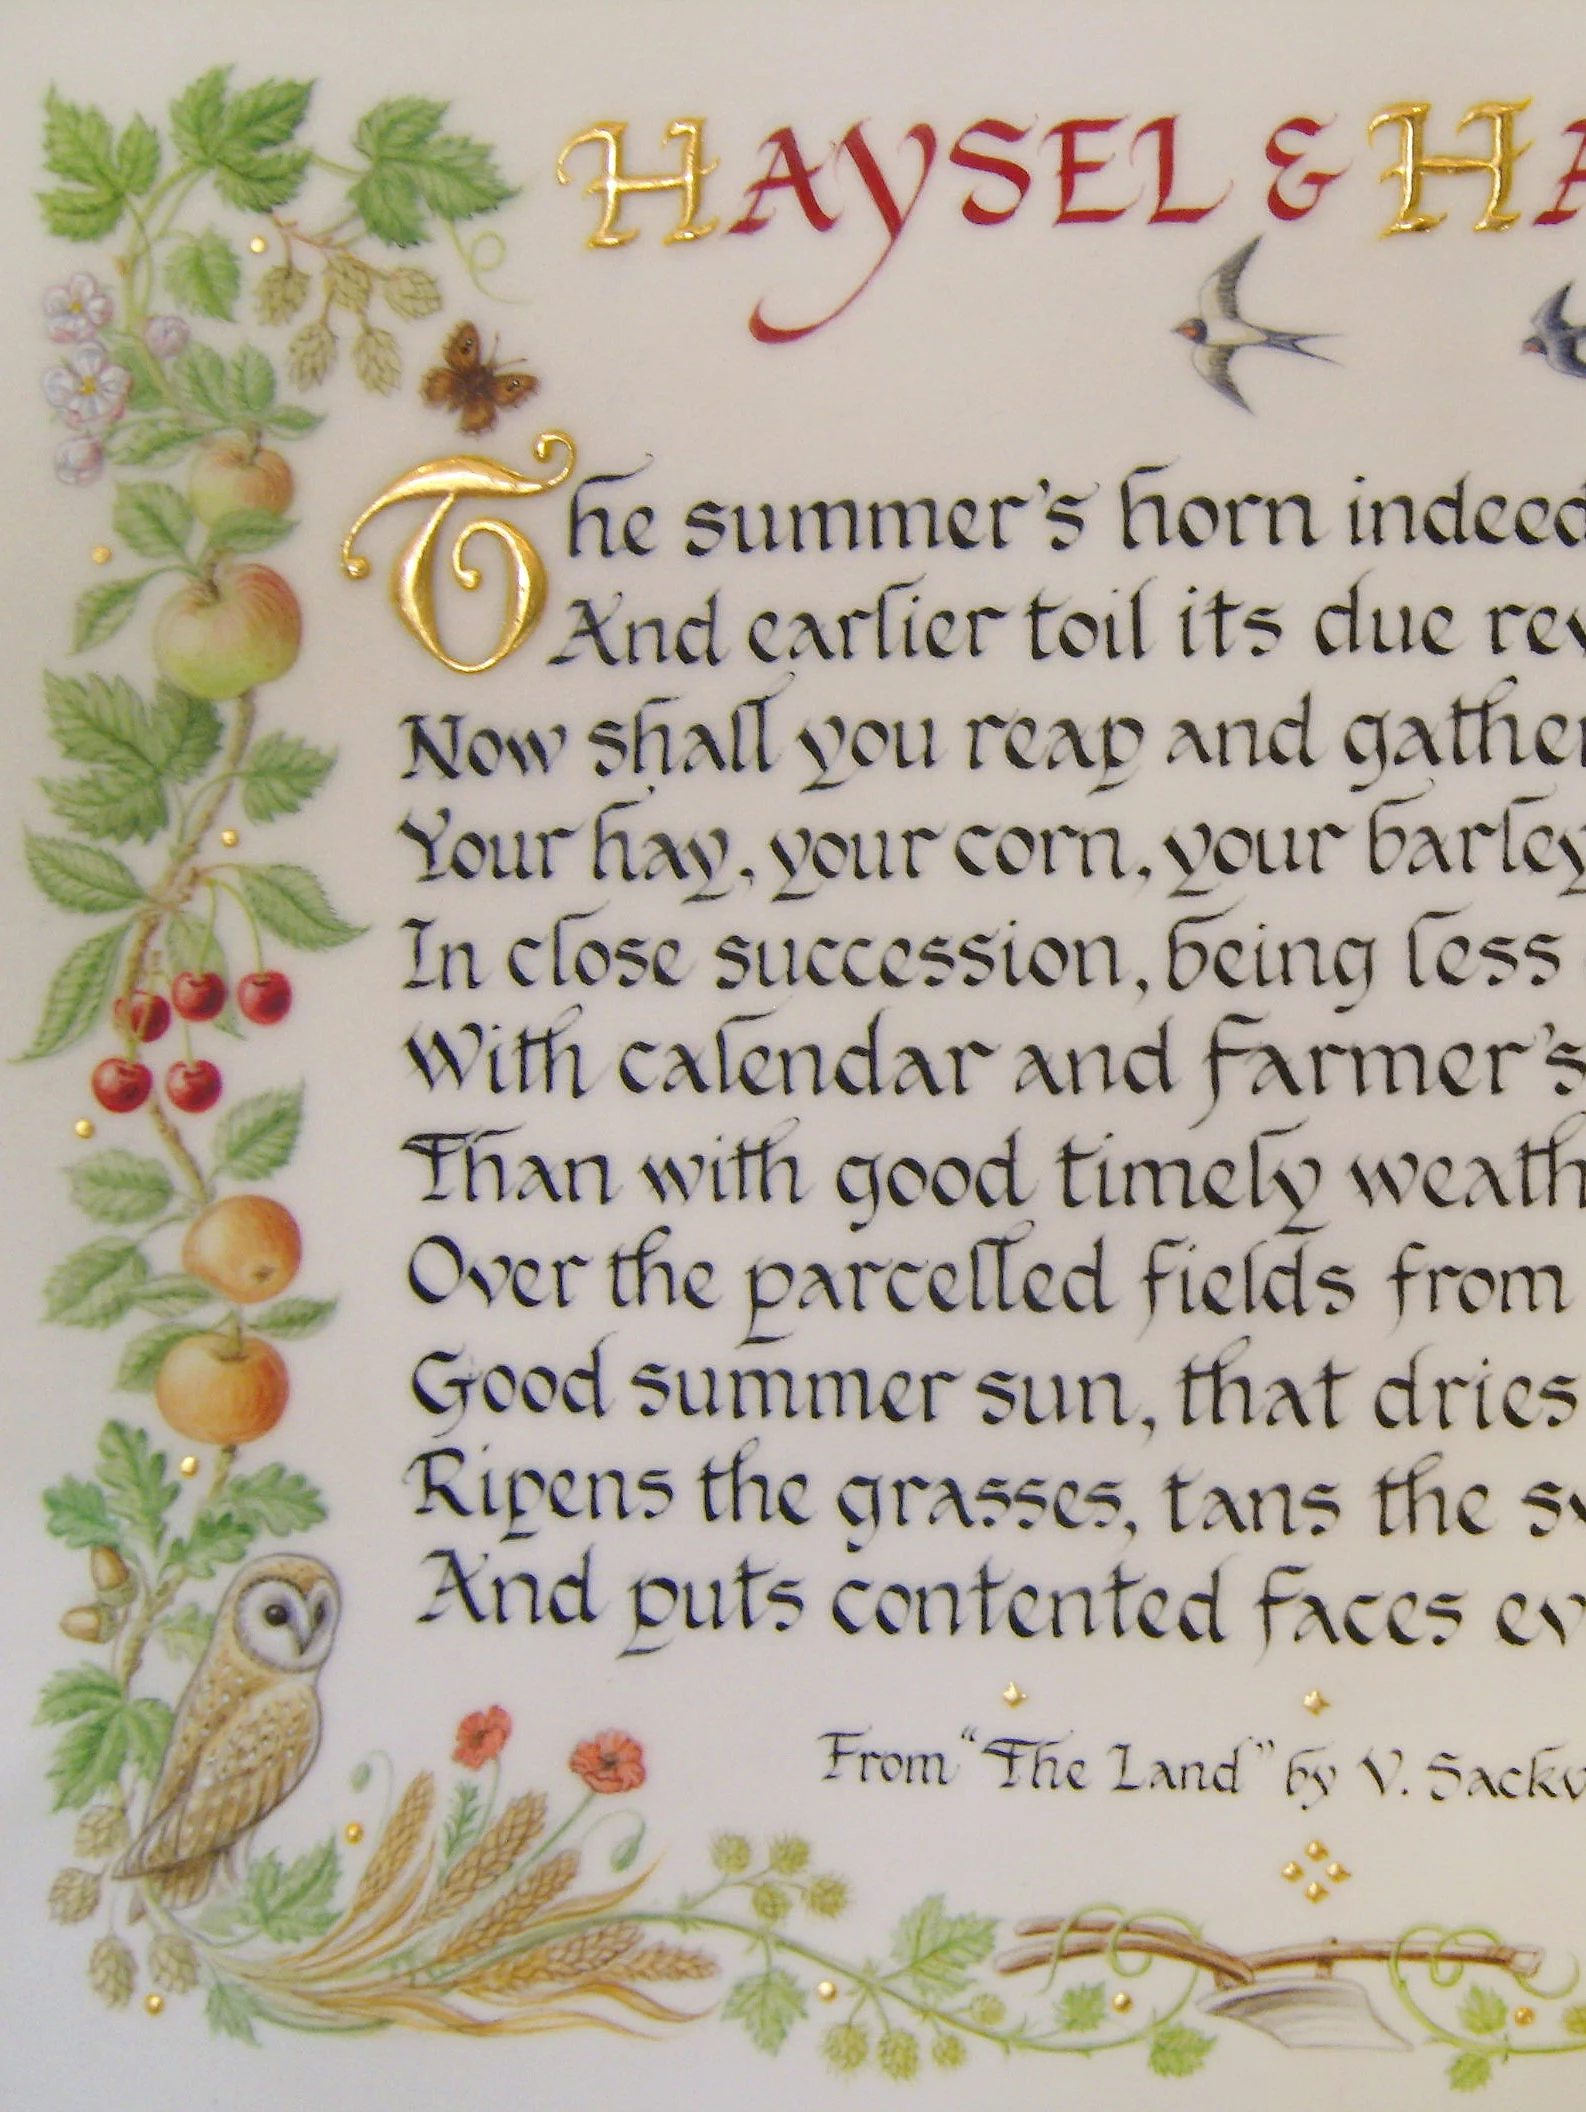 HAYSEL & HA
The summer's horn indeed
And earlier toil its due rev
Now shall you reap and gather
Your hay, your corn, your barley
In close succession, being less
With calendar and farmer's
Than with good timely weath
Over the parcelled fields from
Good summer sun, that dries
Ripens the grasses, tans the sw
And puts contented faces ev
From "The Land" by V. Sackv